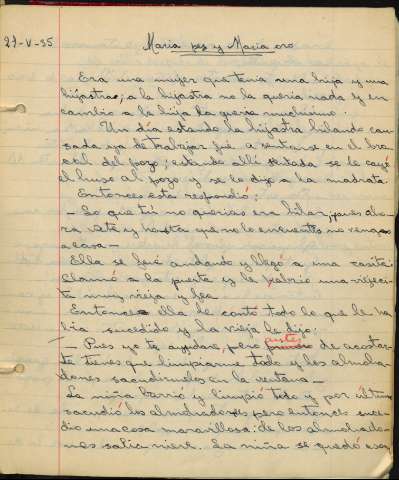 27-V-35
Maria pez y Maria oro
Era una mujer que tenia una hija y una
hijastra; a la hijastra no la queria nada y en
cambio a la hija la queria muchisimo.
Un día estando la hijastra hilando can-
sada ya de trabajar fué a sentarse en el bro-
cal del pozo; estando allí sentada se le cayó
el huso al pozo y se lo dijo a la madrasta.
Entonces esta respondió:
- Lo que tú no querias era hilar, pues aho-
ra vete y hasta que no lo encuentres no vengas
a casa -
Ella se fué andando y llegó a una casita
llamó a la puerta y le habrió una viejeci-
ta muy vieja y fea.
Entonces ella le contó todo lo que le ha-
bia sucedido y la vieja le dijo:
- Pues yo te ayudaré, pero antes de acostar-
te tienes que limpiarme todo y los almoha-
dones sacudirmelos en la ventana -
La niña barrió y limpió todo y por último
sacudió los almohadones pero entonces suce-
dio una cosa maravillosa: de los almohado-
nes salia nieve. La niña se quedó asom